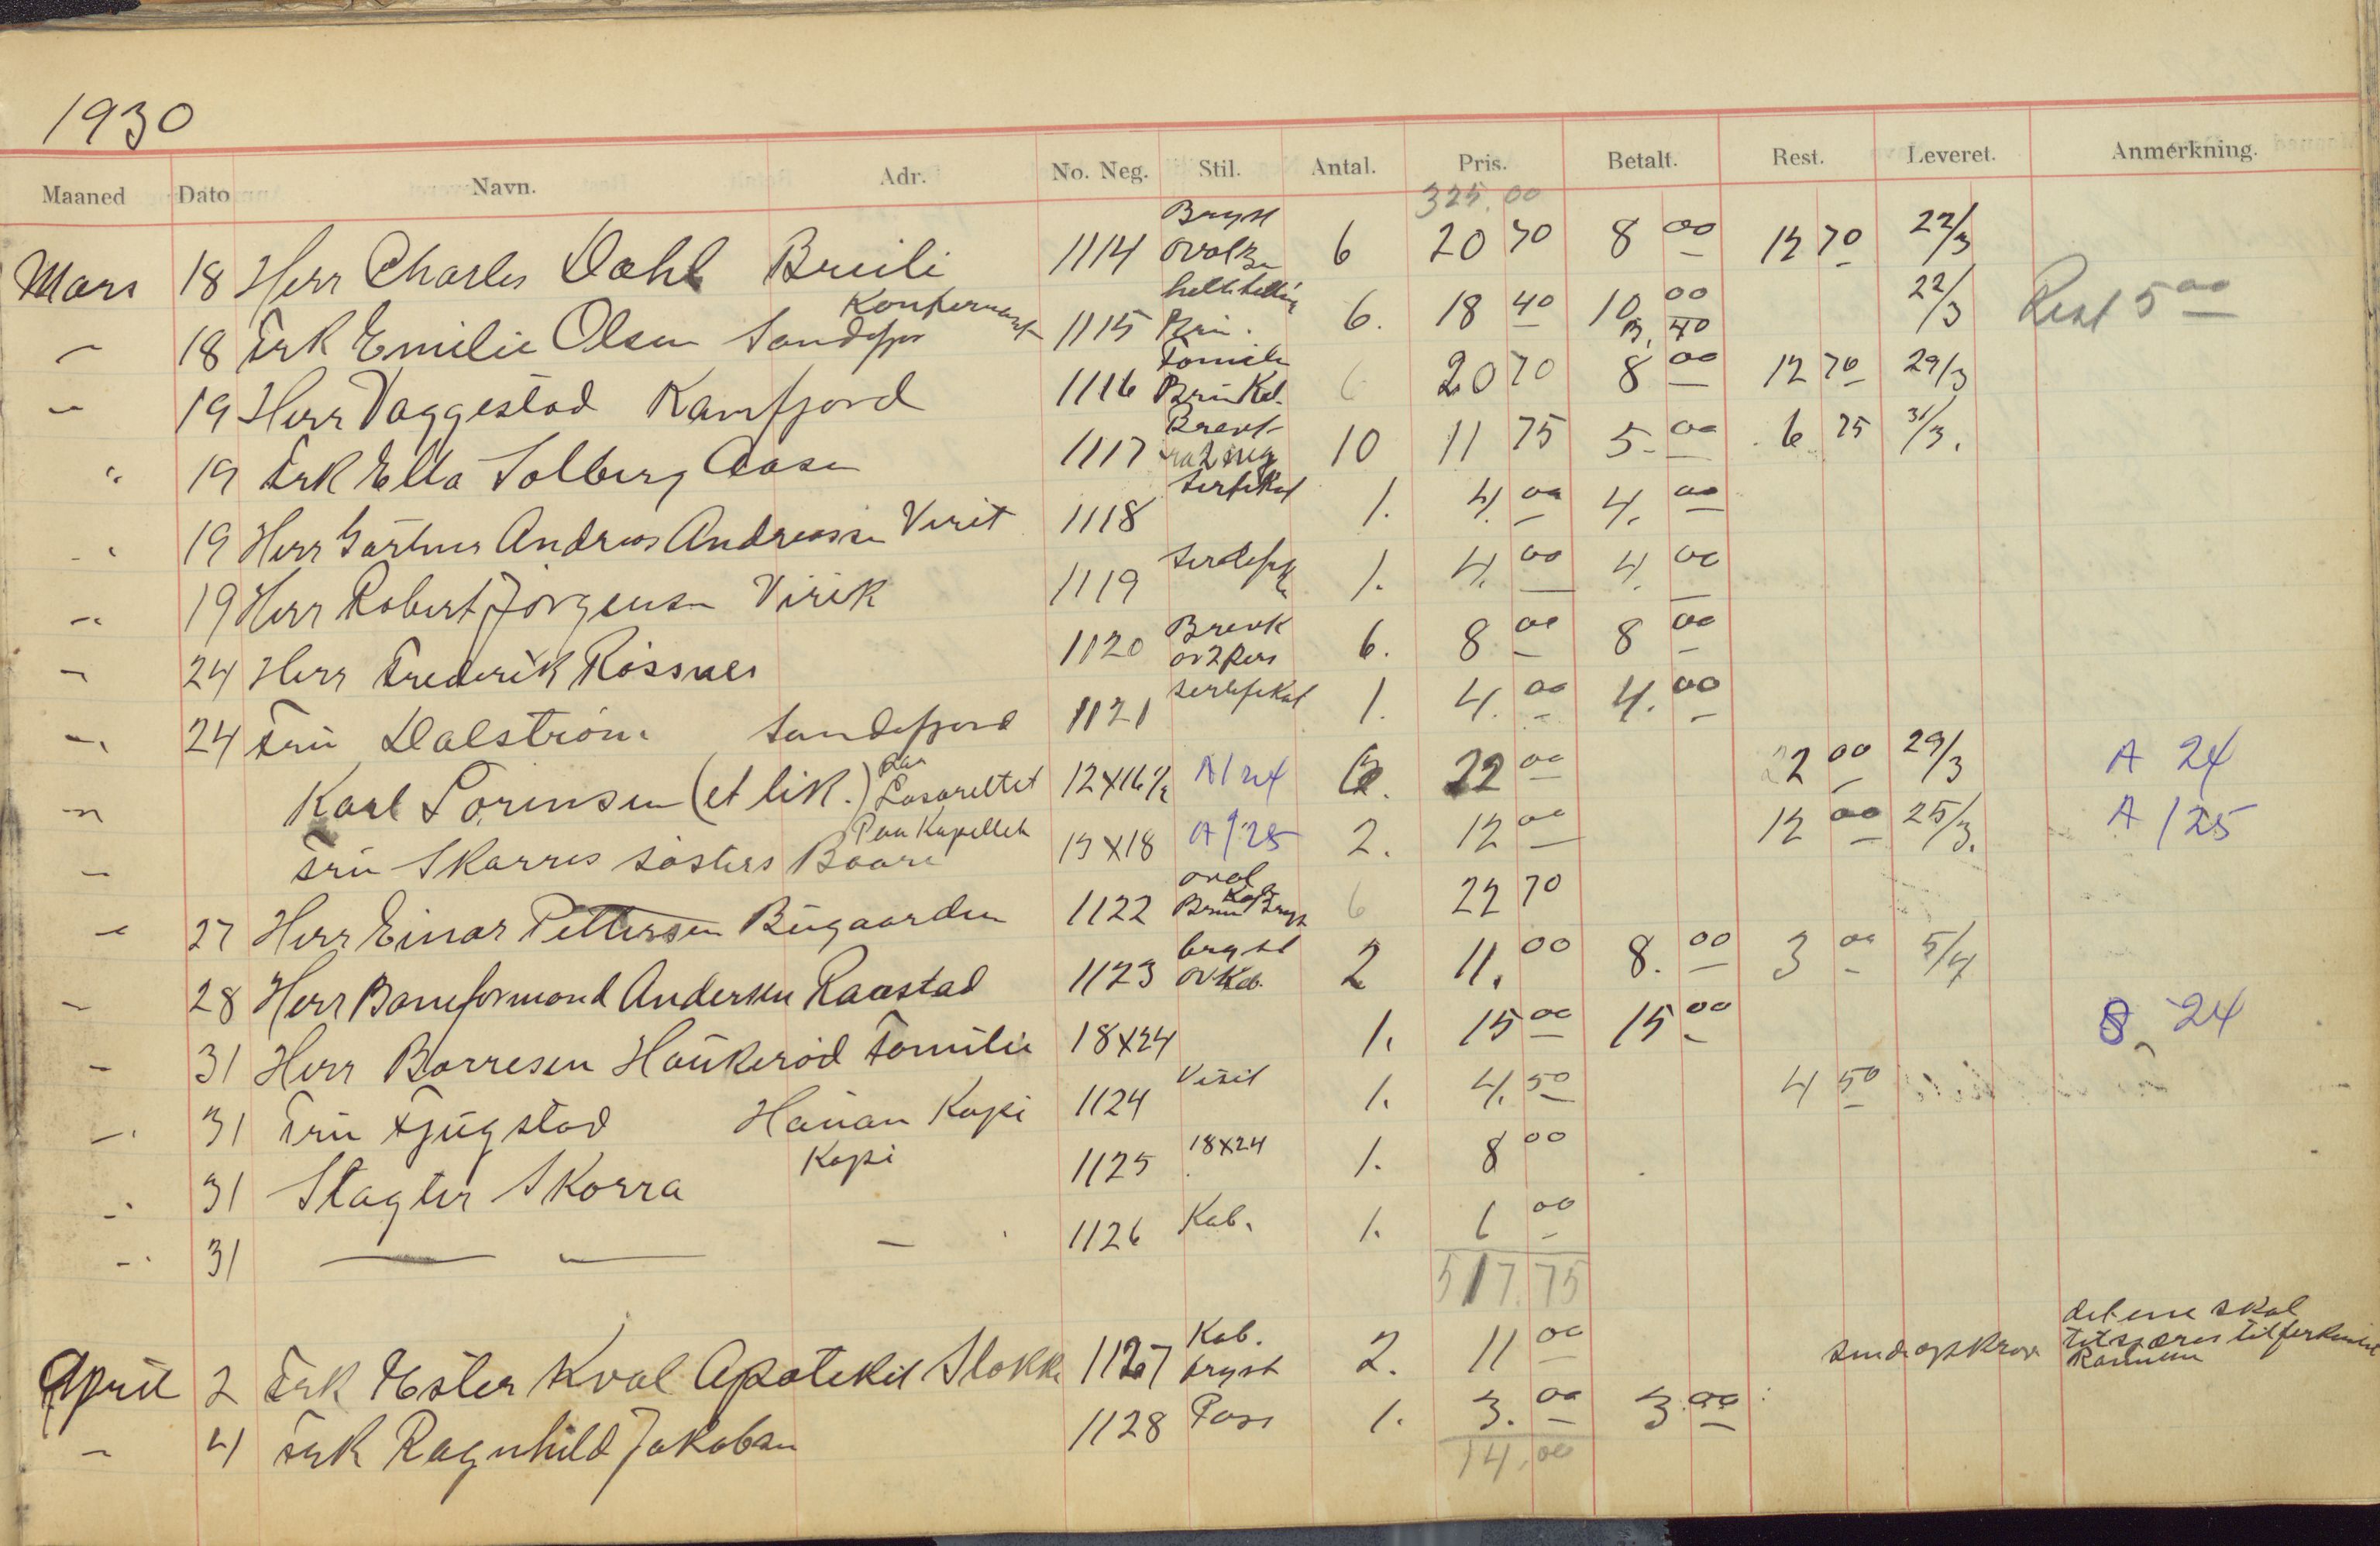 1930
Maaned Dato Navn. Adr. No. Neg. Stil. Antal. Pris. Betalt. Rest. Leveret. Anmerkning.
325.00
Mars 18 Herr Charles Dahl 1114 Bryst oval 6 20 70 8 00 12 70 22/3
18 Frk Emilie Olsen Sandefjor Konfermant 1115 6. 18 40 10 00 40 22/3 Rest 5 00
19 Herr Vaggestad Kamfjord 1116 Familie Brun Kab. 6 20 70 8 00 12 70 29/3
19 Frk Ella Solberg Aasen 1117 10 11 75 5 00 6 75 31/3.
19 Herr Gartner Andreas Andreassen Virik 1118 Sertifikat 1. 4. 00 4. 00
19 Herr Robert Jörgensen Virik 1119 1. 4. 00 4. 00
24 Herr Frederik Rössnes 1120 6. 8 00 8 00
24 Fru Dalström Sandefjord 1121 Sertifikat 1. 4. 00 4. 00
Karl Sörensen (et lik.) Paa Lasarettet 12x16½ A/24 6. 22 00 22 00 29/3 A 24
Fru Skarres søsters Baare Paa Kapellet 13x18 A/25 2. 12 00 12 00 25/3. A/25
27 Herr Einar Pettersen Bugaarden 1122 oval Kab Brun Bryst 6 22 70
28 Herr Bameformand Andersen Raastad 1123 bryst ov Kab. 2 11. 00 8. 00 3 00 5/4
31 Herr Borresen Haukeröd Familie 18x24 1. 15 00 15 00 8 24
31 Fru Fjugstad Hauan Kopi 1124 Visit 1. 4. 50 4 50
31 Slagter Skorra Kopi 1125 18x24 1. 8 00
31 — — — 1126 Kab. 1. 6 00
517.75
April 2 Frk Ester Kval Apoteket Stokke 1127 Kab. bryst 2. 11 00 det ene skal
4 Frk Ragnhild Jakobsen 1128 Pass 1. 3. 00 3. 00
14.00